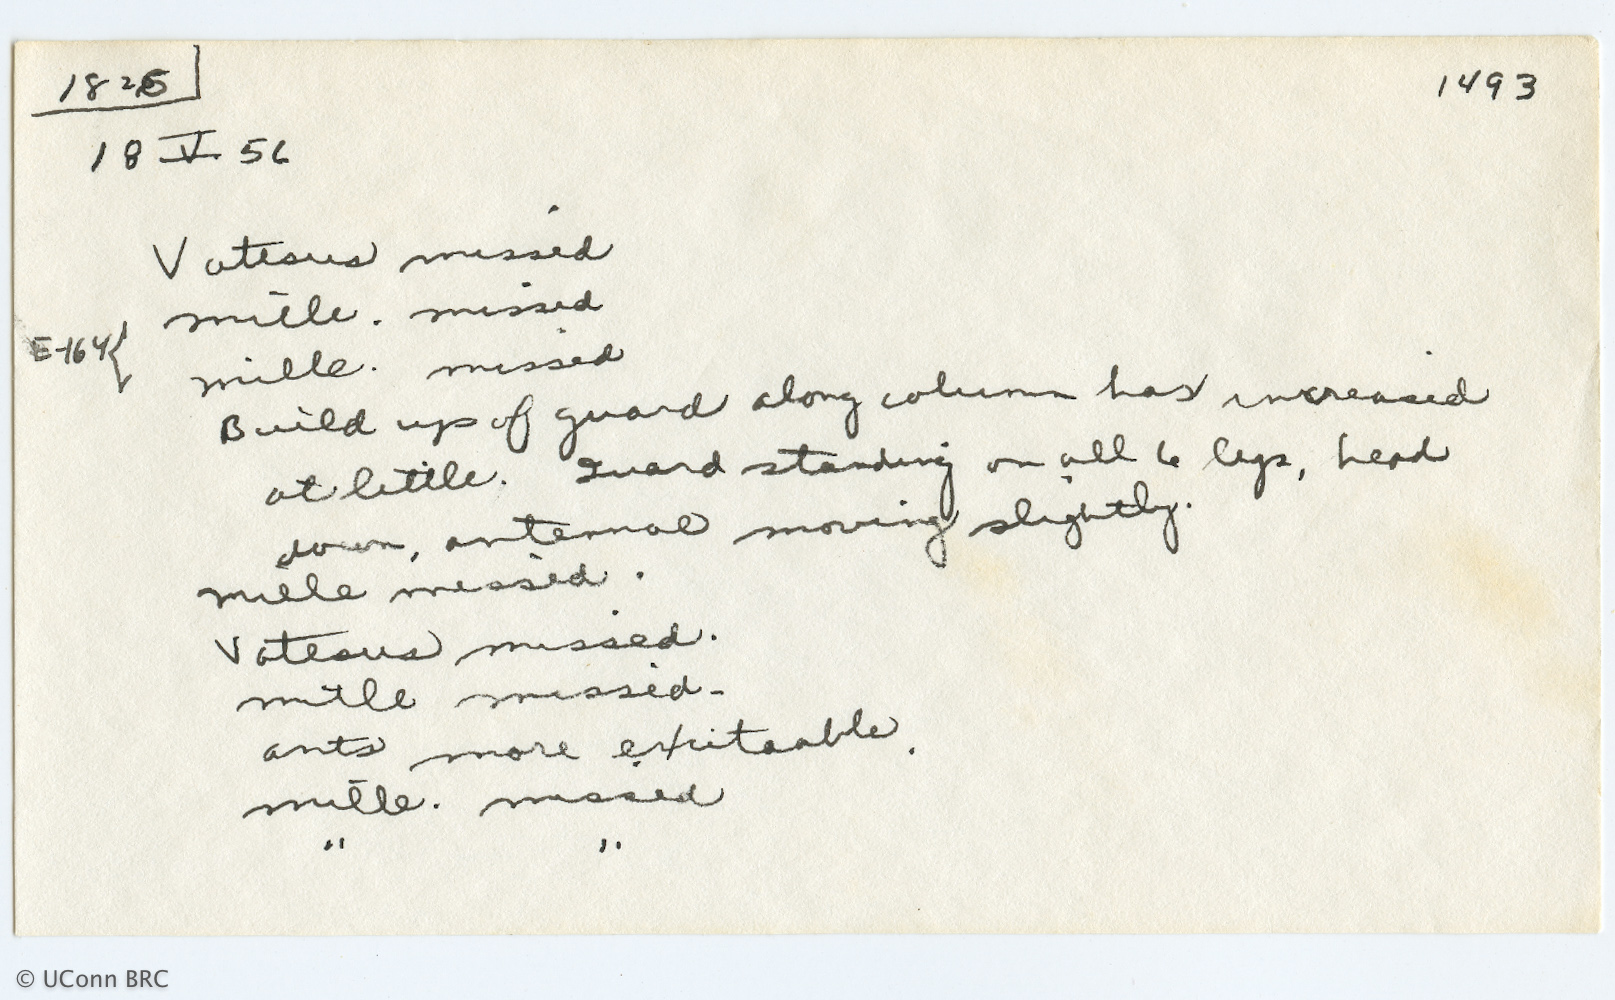 1825
1493
18 V 56
Vatesus missed
mille. missed
E-164 { mille. missed
Build up of guard along column has increased
at little. Guard standing on all 6 legs, head
down, antennae moving slightly.
mille missed.
Vatesus missed.
mille missed-
ants more exitaable.
mille. missed
" "
© UConn BRC